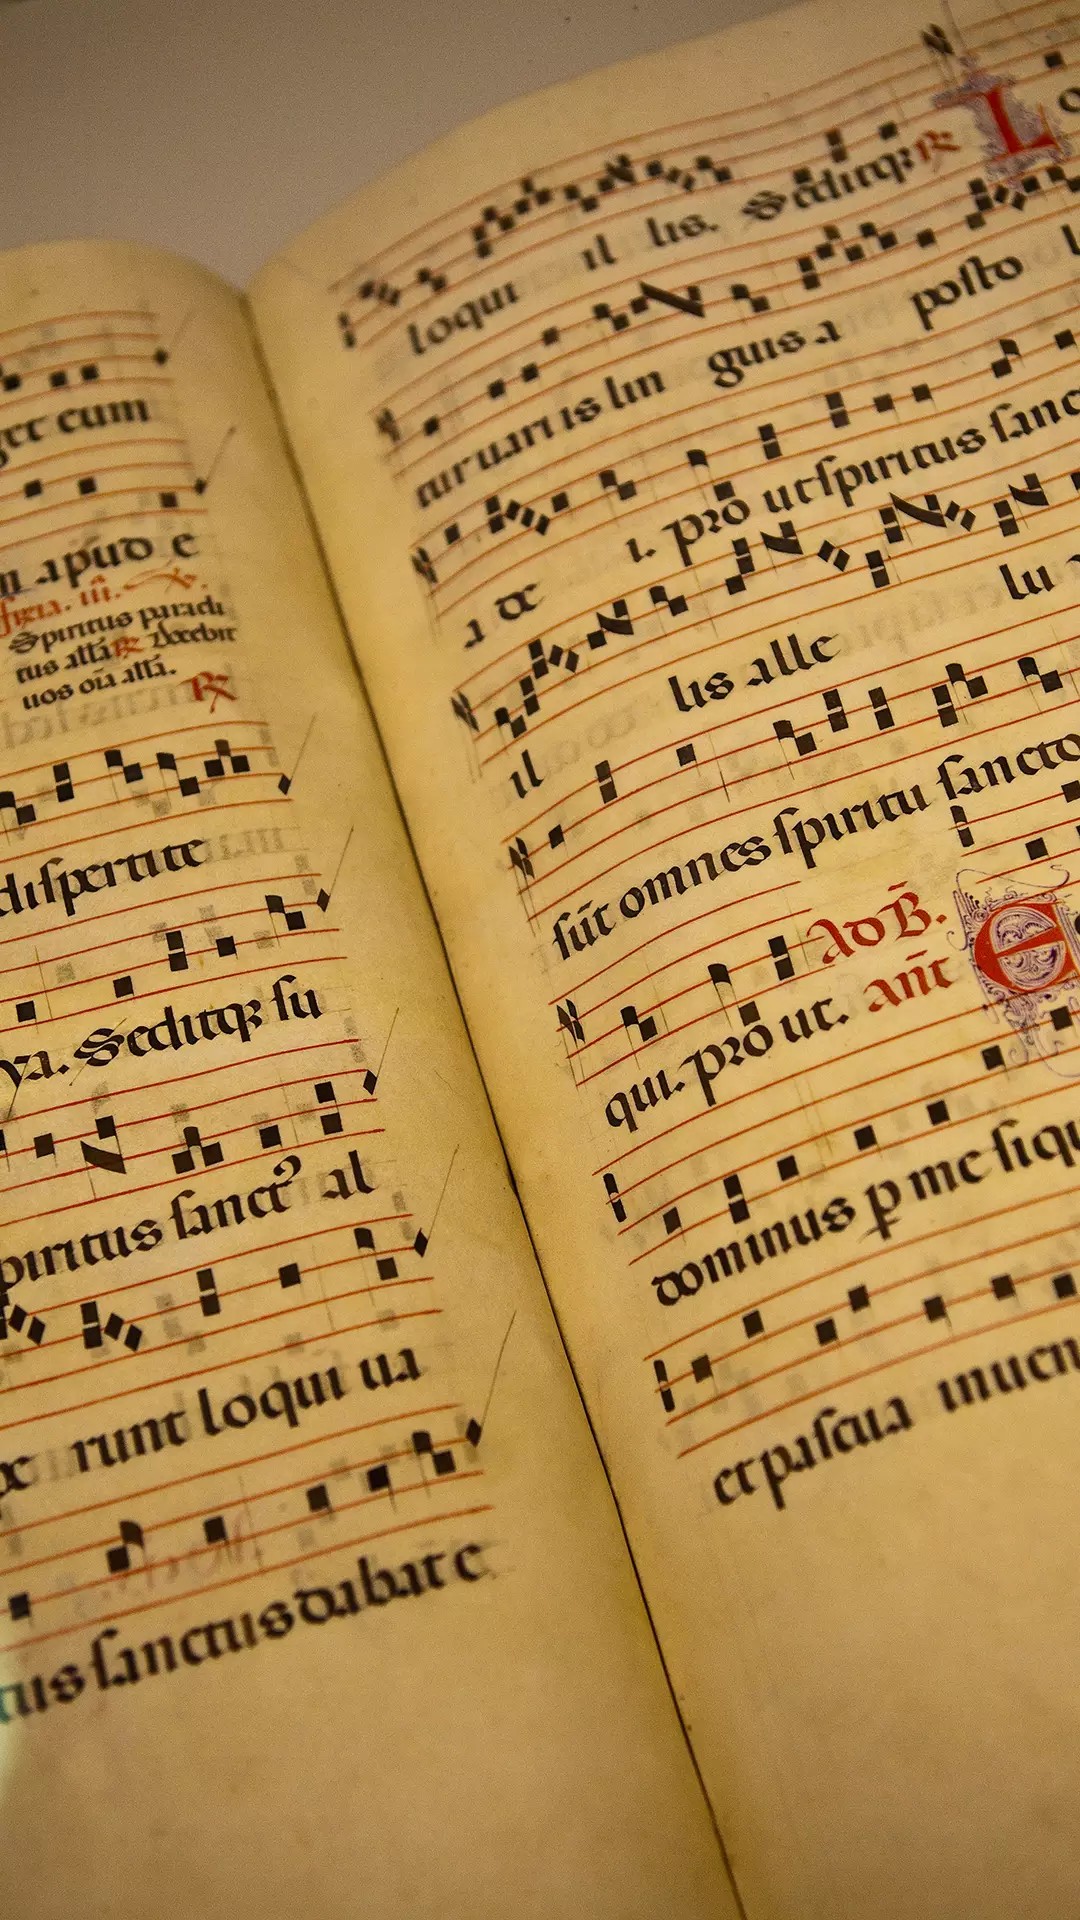 get cum
apud e
feria. iii.
Spiritus paracli
tus allã ℟ Docebit
uos oĩa allã.
℟
diſpertite
ya. Seditqꝫ ſu
piritus ſanctꝰ al
runt loqui ua
tus ſanctus dabat e
loqui il lis. Seditqꝫ ℟ L o
tur uari is lin guis a poſto l
ı. pro ut ſpiritus ſanc
il lis alle lu
ſũt omnes ſpiritu ſancto
qui. pro ut. Ad B̃. añt E
dominus ꝑ me ſiqu
et paſcua inuen